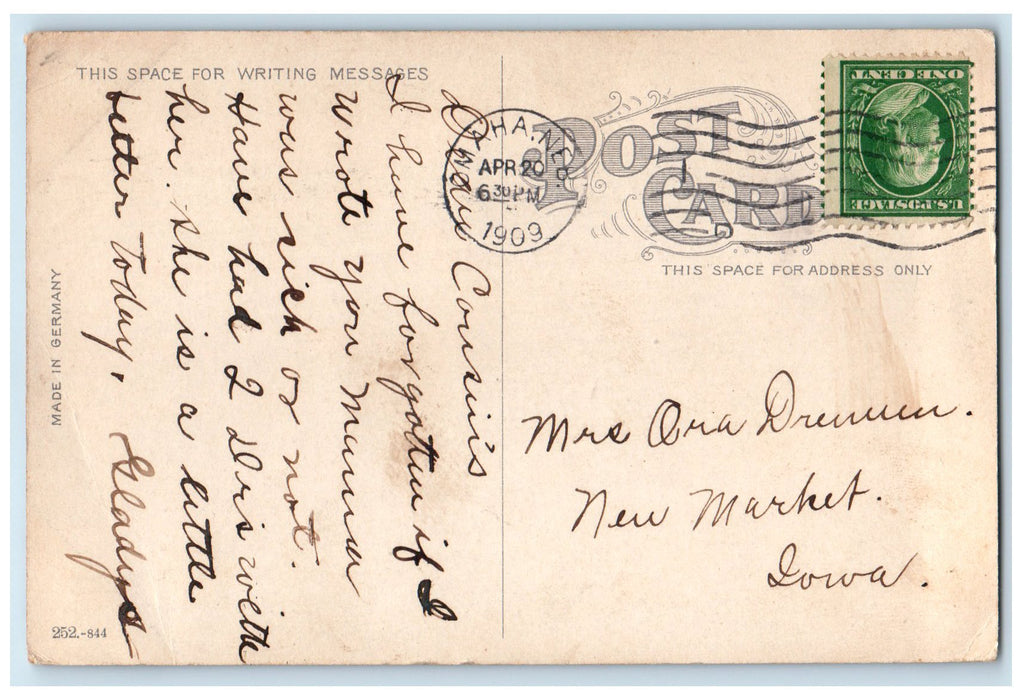 THIS SPACE FOR WRITING MESSAGES
Dear Cousin's
I have forgotten if I
wrote you Mumma
was sick or not.
Have had 2 Drs with
her. She is a little
better today.
Gladys
MADE IN GERMANY
252.-844
POST
CARD
OMAHA, NEB.
APR 20
630 PM
1909
ONE CENT
U.S. POSTAGE
THIS SPACE FOR ADDRESS ONLY
Mrs Ora Drennen.
New Market.
Iowa.